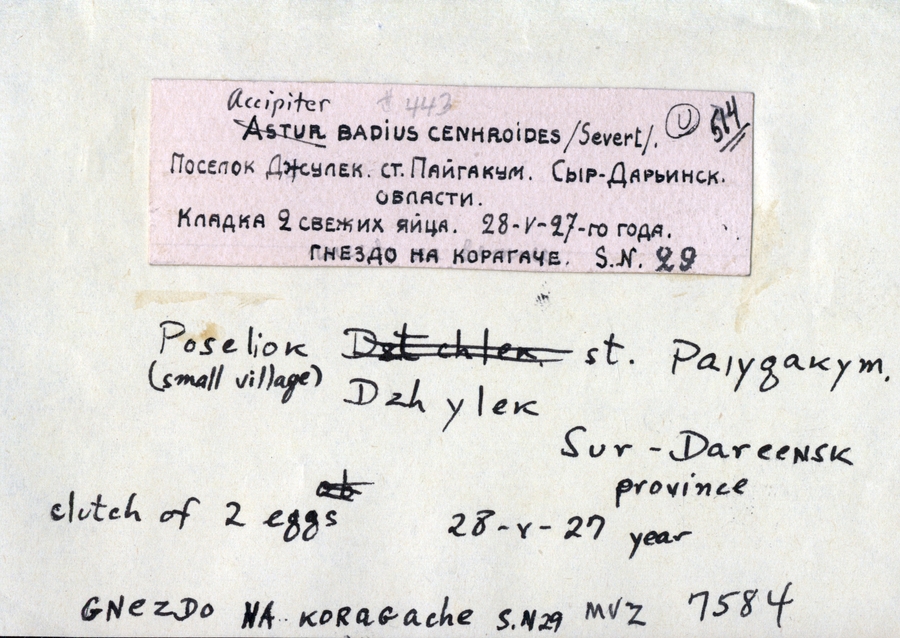 Accipiter # 443
ASTUR BADIUS CENHROIDES /Severt/. U 514
ПОСЕЛОК ДЖУЛЕК. СТ. ПАЙГАКУМ. СЫР-ДАРЬИНСК.
ОБЛАСТИ.
КЛАДКА 2 СВЕЖИХ ЯЙЦА. 28-V-27-ГО ГОДА.
ГНЕЗДО НА КОРАГАЧЕ. S.N. 29
Poseliok st. Paiygakym.
(small village) Dzhylek
Sur-Dareensk
province
clutch of 2 eggs 28-v-27 year
GNEZDO NA KORAGACHE S.N29 MVZ 7584